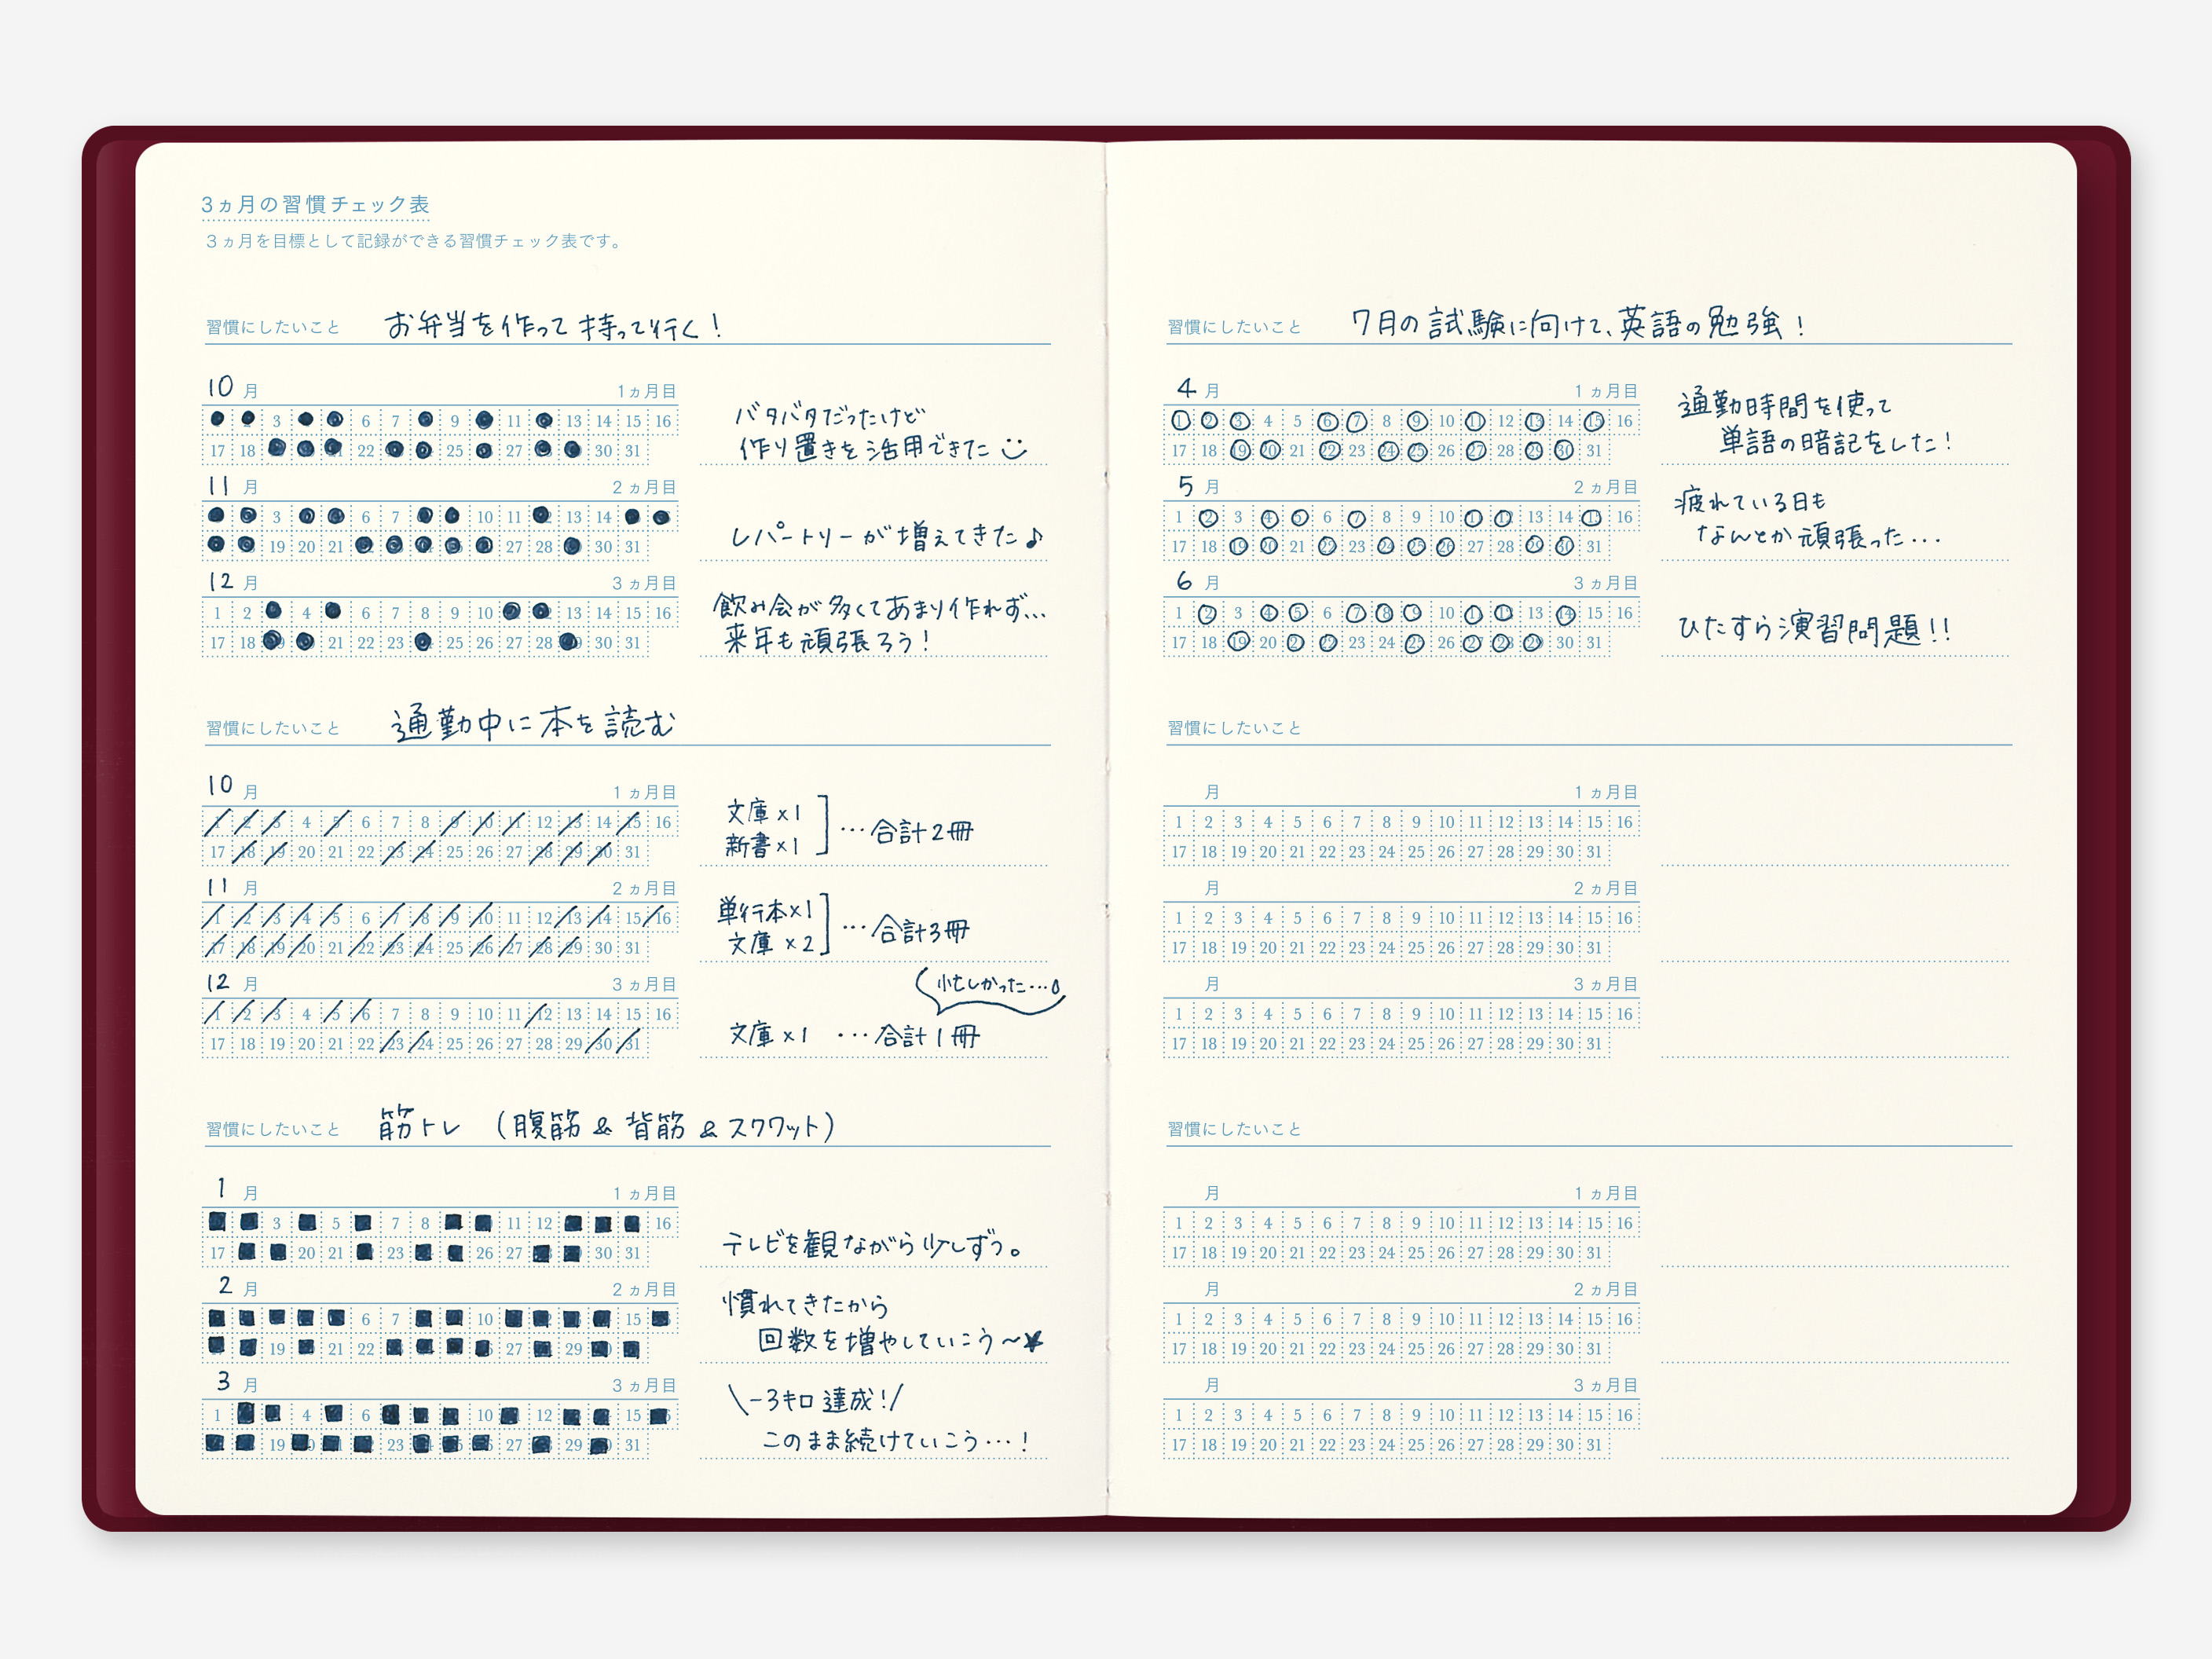 3ヵ月の習慣チェック表
3ヵ月を目標として記録ができる習慣チェック表です。
習慣にしたいこと お弁当を作って持って行く！
10月 1ヵ月目
3 6 7 9 11 13 14 15 16
17 18 22 25 27 30 31
バタバタだったけど
作り置きを活用できた
11月 2ヵ月目
3 6 7 10 11 13 14
19 20 21 27 28 30 31
レパートリーが増えてきた♪
12月 3ヵ月目
1 2 4 6 7 8 9 10 13 14 15 16
17 18 21 22 23 25 26 27 28 30 31
飲み会が多くてあまり作れず…
来年も頑張ろう！
習慣にしたいこと 通勤中に本を読む
10月 1ヵ月目
1 2 3 4 5 6 7 8 9 10 11 12 13 14 15 16
17 18 19 20 21 22 23 24 25 26 27 28 29 30 31
文庫×1
新書×1
…合計2冊
11月 2ヵ月目
1 2 3 4 5 6 7 8 9 10 11 12 13 14 15 16
17 18 19 20 21 22 23 24 25 26 27 28 29 30 31
単行本×1
文庫×2
…合計3冊
12月 3ヵ月目
1 2 3 4 5 6 7 8 9 10 11 12 13 14 15 16
17 18 19 20 21 22 23 24 25 26 27 28 29 30 31
忙しかった…
文庫×1 …合計1冊
習慣にしたいこと 筋トレ （腹筋 & 背筋 & スクワット）
1月 1ヵ月目
3 5 7 8 11 12 16
17 20 21 23 26 27 30 31
テレビを観ながら少しずつ。
2月 2ヵ月目
6 7 10 15
19 21 22 27 29
慣れてきたから
回数を増やしていこう〜★
3月 3ヵ月目
1 4 6 10 12 15
19 23 27 29 31
\-3キロ達成！/
このまま続けていこう…！
習慣にしたいこと 7月の試験に向けて、英語の勉強！
4月 1ヵ月目
1 2 3 4 5 6 7 8 9 10 11 12 13 14 15 16
17 18 19 20 21 22 23 24 25 26 27 28 29 30 31
通勤時間を使って
単語の暗記をした！
5月 2ヵ月目
1 2 3 4 5 6 7 8 9 10 11 12 13 14 15 16
17 18 19 20 21 22 23 24 25 26 27 28 29 30 31
疲れている日も
なんとか頑張った…
6月 3ヵ月目
1 2 3 4 5 6 7 8 9 10 11 12 13 14 15 16
17 18 19 20 21 22 23 24 25 26 27 28 29 30 31
ひたすら演習問題！！
習慣にしたいこと
月 1ヵ月目
1 2 3 4 5 6 7 8 9 10 11 12 13 14 15 16
17 18 19 20 21 22 23 24 25 26 27 28 29 30 31
月 2ヵ月目
1 2 3 4 5 6 7 8 9 10 11 12 13 14 15 16
17 18 19 20 21 22 23 24 25 26 27 28 29 30 31
月 3ヵ月目
1 2 3 4 5 6 7 8 9 10 11 12 13 14 15 16
17 18 19 20 21 22 23 24 25 26 27 28 29 30 31
習慣にしたいこと
月 1ヵ月目
1 2 3 4 5 6 7 8 9 10 11 12 13 14 15 16
17 18 19 20 21 22 23 24 25 26 27 28 29 30 31
月 2ヵ月目
1 2 3 4 5 6 7 8 9 10 11 12 13 14 15 16
17 18 19 20 21 22 23 24 25 26 27 28 29 30 31
月 3ヵ月目
1 2 3 4 5 6 7 8 9 10 11 12 13 14 15 16
17 18 19 20 21 22 23 24 25 26 27 28 29 30 31